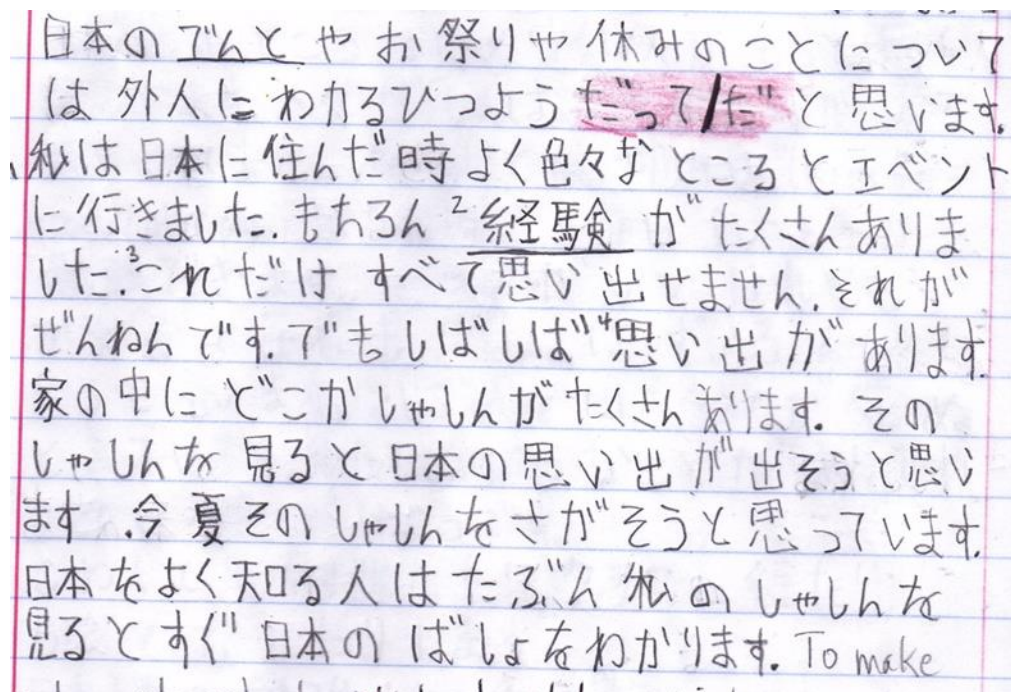 日本のでんとやお祭りや休みのことについて
は外人にわかるひつようだって/だと思います.
私は日本に住んだ時よく色々なところとエベント
に行きました. もちろん ²経験がたくさんありま
した. ³これだけすべて思い出せません. それが
ぜんねんです. でもしばしば ⁴思い出があります.
家の中にどこかしゃしんがたくさんあります. その
しゃしんを見ると日本の思い出が出そうと思い
ます. 今夏そのしゃしんをさがそうと思っています.
日本をよく知る人はたぶん私のしゃしんを
見るとすぐ日本のばしょをわかります. To make